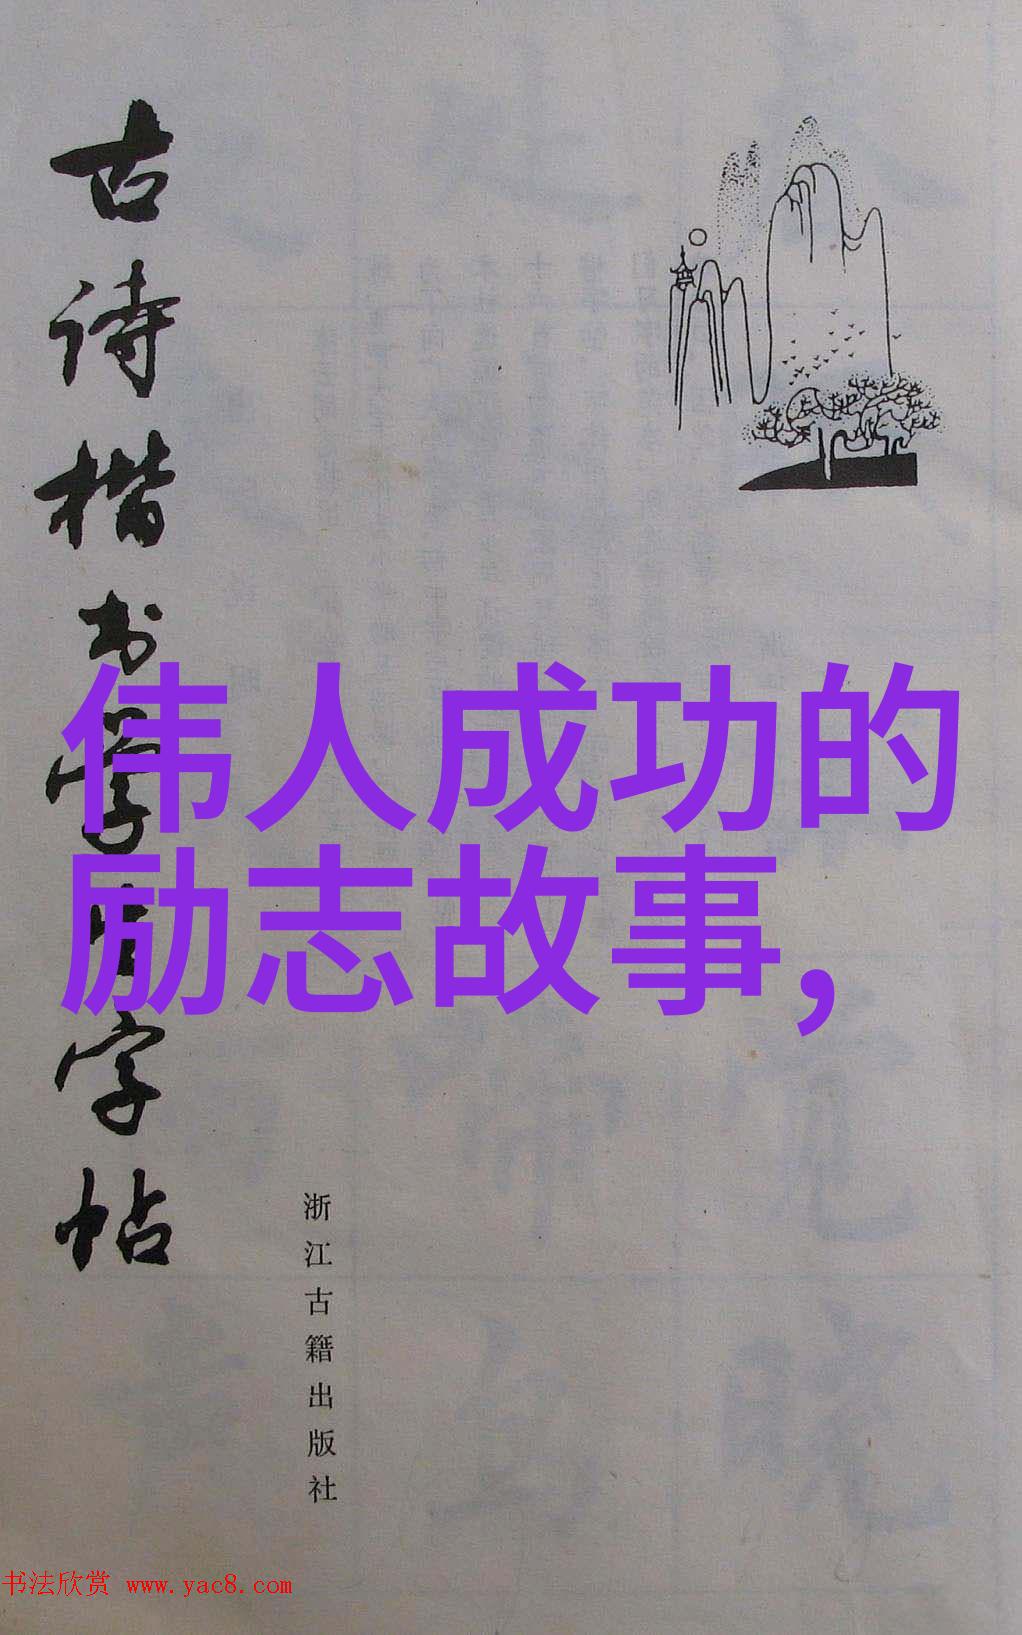 古诗楷书学生字帖
伟人成功的
励志故事,
浙江古籍出版社
书法欣赏 www.yac8.com